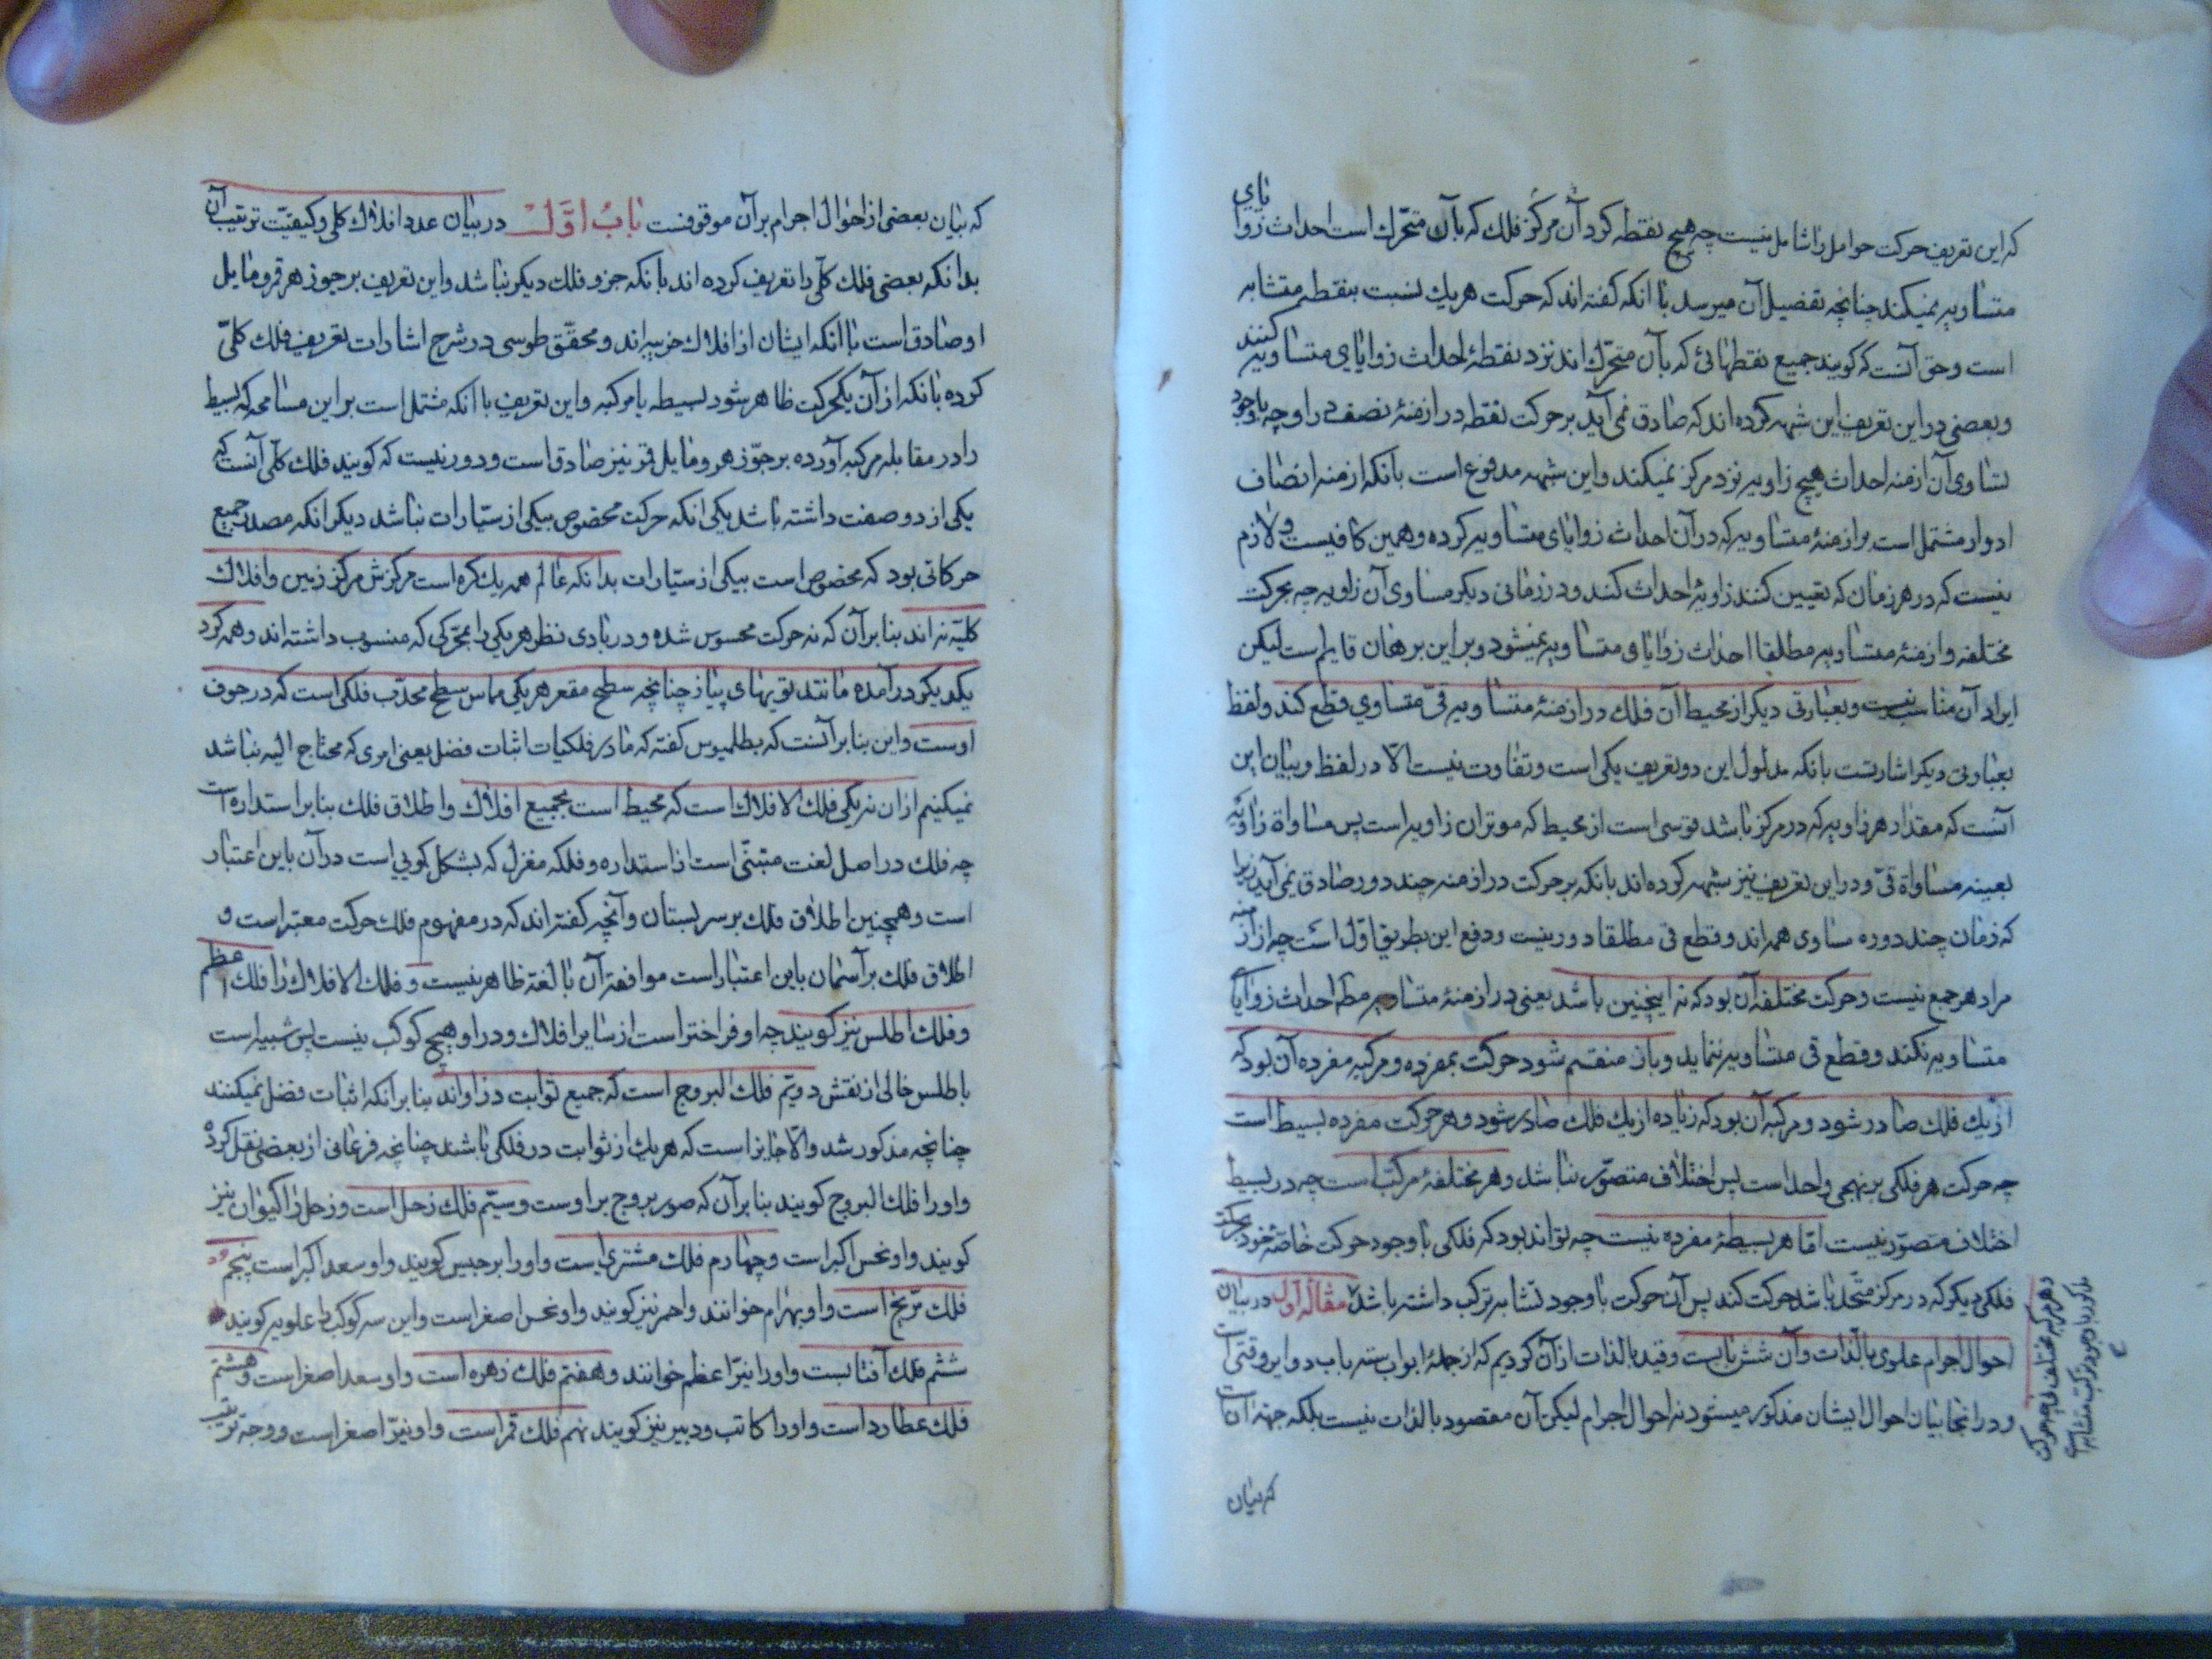 که این تعریف حرکت حوامل را شامل نیست چه هیچ نقطه کرد آن مرکز فلک که بآن متحرّک است احداث زوایای
متساویه نمیکند چنانچه تفصیل آن میرسد با آنکه کفته اند که حرکت هریک نسبت بنقطه متشابه
است و حق آنست که کویند جمیع نقطهائی که بآن متحرّک اند نزد نقطهٔ احداث زوایای متساویه کنند
و بعضی در این تعریف این شبهه کرده اند که صادق نمی آید بر حرکت نقطه در ازمنهٔ نصف دراوچه باوجود
تساوی آن ازمنه احداث هیچ زاویه نزد مرکز نمیکند و این شبهه مدفوع است بآنکه ازمنه انصاف
ادوار مشتمل است بر ازمنهٔ متساویه که در آن احداث زوایای متساویه کرده و همین کافیست و لازم
نیست که در هر زمان که تعیین کنند زاویهٔ احداث کند و در زمانی دیکر مساوی آن زاویه چه بحرکت
مختلفه و ازمنهٔ متساویه مطلقا احداث زوایا و متساویه نمیشود و بر این برهان قایم است لیکن
ایراد آن مناسب نیست و بعبارتی دیکر از محیط آن فلک در ازمنهٔ متساویه قسیّ متساوی قطع کند و لفظ
بعبارتی دیکر اشارتست بآنکه مدلول این دو تعریف یکی است و تفاوت نیست الّا در لفظ و بیان این
آنست که مقدار هر زاویه که در مرکز باشد قوسی است از محیط که موتر آن زاویه است پس مساواة زاویه
بعینه مساواة قسیّ و در این تعریف نیز شبهه کرده اند بآنکه بر حرکت در ازمنه چند دور صادق نمی آید زیرا
که زمان چند دوره مساوی همه اند و قطع قسی مطلقا دور نیست و دفع این بطریق اوّل است چه از ازمنه
مراد هر جمع نیست و حرکت مختلفه آن بود که نه اینچنین باشد یعنی در ازمنهٔ متساویه مطلقا احداث زوایای
متساویه نکند و قطع قسی متساویه ننماید و باز منقسم شود حرکت بمفرده و مرکبه مفرده آن بود که
از یک فلک صادر شود و مرکبه آن بود که زیاده از یک فلک صادر شود و هر حرکت مفرده بسیط است
چه حرکت هر فلکی بر نهجی واحد است پس اختلاف متصوّر نباشد و هر مختلفهٔ مرکّب است چه در بسیط
اختلاف متصوّر نیست امّا هر بسیطهٔ مفرده نیست چه تواند بود که فلکی با وجود حرکت خاصّهٔ خود بحرکت
فلکی دیکر که در مرکز متّحد باشد حرکت کند پس آن حرکت با وجود تشابه ترکّب داشته باشد مقالهٔ اول در بیان
احوال اجرام علوی بالذات و آن شش بابست و قید بالذات از آن کردیم که از جملهٔ ابواب سته باب دوایر و قسی است
و در آنجا بیان احوال ایشان مذکور میشود نه احوال اجرام لیکن آن مقصود بالذات نیست بلکه جهة آن است
که بیان
که بیان بعضی از احوال اجرام بر آن موقوفست باب اوّل در بیان عدد افلاک کلی و کیفیّت ترتیب آن
بدانکه بعضی فلک کلّی را تعریف کرده اند بآنکه جزو فلک دیکر نباشد و این تعریف بر جوزهر قمر و مایل
او صادق است با آنکه ایشان از افلاک جزییه اند و محقّق طوسی در شرح اشارات تعریف فلک کلّی
کرده بآنکه از آن یکحرکت ظاهر شود بسیطه یا مرکبه و این تعریف با آنکه مشتمل است بر این مسامحه که بسیط
را در مقابله مرکبه آورده بر جوّزهر و مایل قمر نیز صادق است و دور نیست که کویند فلک کلّی آنست که
یکی از دو صفت داشته باشد یکی آنکه حرکت مخصوص بیکی از ستیارات نباشد دیکر آنکه مصدر جمیع
حرکاتی بود که مخصوص است بیکی از ستیارات بدانکه عالم همه یک کره است مرکزش مرکز زمین و افلاک
کلیّه نه اند بنا بر آن که نه حرکت محسوس شده و در بادی نظر هر یکی را بمحرّکی که منسوب داشته اند و همه کرد
یکدیکر درآمده مانند تویهای پیاز چنانچه سطح مقعر هر یکی مماس سطح محدّب فلکی است که در جوف
اوست و این بنا بر آنست که بطلمیوس کفته که ما در فلکیات اثبات فضل یعنی امری که محتاج الیه نباشد
نمیکنیم از آن نه یکی فلک الافلاک است که محیط است بجمیع افلاک و اطلاق فلک بنا بر استداره است
چه فلک در اصل لغت مبتنی است از استداره و فلکه مغزل که بشکل کویی است در آن باین اعتبار
است و همچنین اطلاق فلک بر سر بستان و آنچه کفته اند که در مفهوم فلک حرکت معتبر است و
اطلاق فلک بر آسمان باین اعتبار است موافقة آن بالغة ظاهر نیست و فلک الافلاک را فلک اعظم
و فلک اطلس نیز کویند چه او فراختر است از سایر افلاک و در او هیچ کوکب نیست پس شبیه است
باطلس خالی از نقش دویّم فلک البروج است که جمیع ثوابت در او اند بنا بر آنکه اثبات فضل نمیکنند
چنانچه مذکور شد و الّا جایز است که هر یک از ثوابت در فلکی باشد چنانچه فرغانی از بعضی نقل کرده
و او را فلک البروج کویند بنا بر آن که صور بروج بر اوست و سیّم فلک زحل است و زحل را کیوان نیز
کویند و او نحس اکبر است و چهارم فلک مشتری است و او را برجیس کویند و او سعد اکبر است پنجم
فلک مرّیخ است و او بهرام خوانند و احمر نیز کویند و او نحس اصغر است و این سه کوکب را علویه کویند
ششم فلک آفتابست و او را نیّر اعظم خوانند و هفتم فلک زهره است و او سعد اصغر است و هشتم
فلک عطارد است و او را کاتب و دبیر نیز کویند نهم فلک قمر است و او نیّر اصغر است و وجه ترتیب